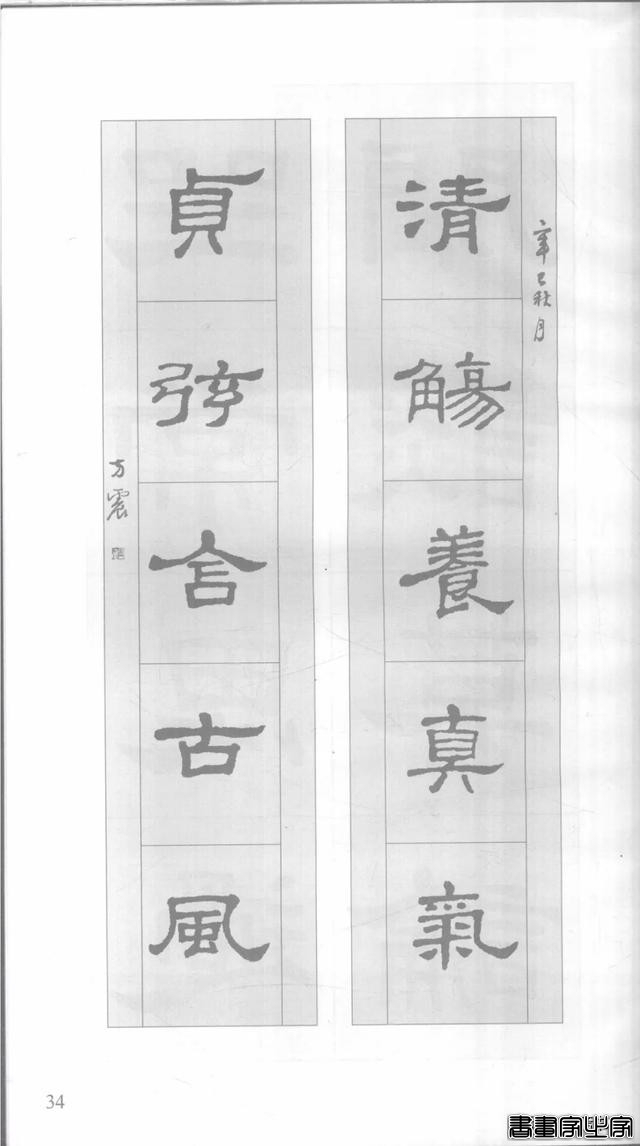 辛巳秋月
清觴養真氣
貞弦含古風
方震
34
書畫家必字